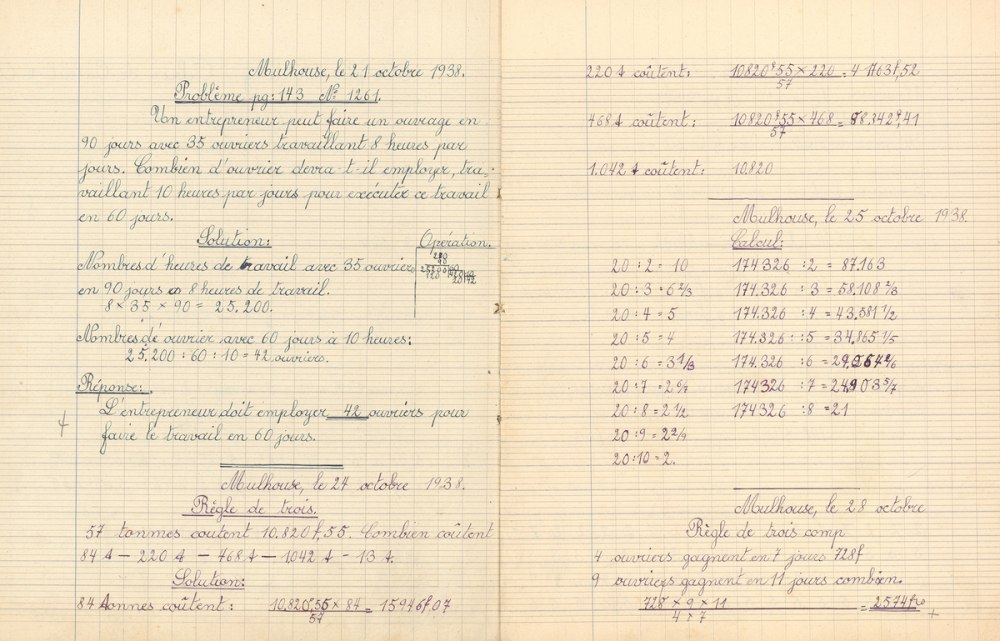 Mulhouse, le 21 octobre 1938.
Problème pg: 143 N° 1261.
Un entrepreneur peut faire un ouvrage en
90 jours avec 35 ouvriers travaillant 8 heures par
jours. Combien d'ouvrier devra-t-il employer, tra-
vaillant 10 heures par jours pour exécuter ce travail
en 60 jours.
Solution: Opération.
Nombres d'heures de travail avec 35 ouvriers
en 90 jours à 8 heures de travail.
8 × 35 × 90 = 25.200.
Nombres d'ouvrier avec 60 jours à 10 heures:
25.200 : 60 : 10 = 42 ouvriers.
Réponse:
L'entrepreneur doit employer 42 ouvriers pour
faire le travail en 60 jours.
Mulhouse, le 24 octobre 1938.
Règle de trois.
57 tonnes coutent 10.820f,55. Combien coûtent
84 t — 220 t — 468 t — 1042 t - 13 t.
Solution:
84 tonnes coûtent: 10.820f,55 × 84 = 15946f,07
57
220 t coûtent: 10820f55 × 220 = 41763f,52
57
468 t coûtent: 10820f55 × 468 = 88.842f,41
57
1.042 t coûtent: 10.820
Mulhouse, le 25 octobre 1938.
Calcul:
20 : 2 = 10 174.326 : 2 = 87.163
20 : 3 = 6 2/3 174.326 : 3 = 58.108 2/3
20 : 4 = 5 174.326 : 4 = 43.581 1/2
20 : 5 = 4 174.326 : : 5 = 34.865 1/5
20 : 6 = 3 1/3 174.326 : 6 =
20 : 7 = 2 6/7 174326 : 7 = 24.903 5/7
20 : 8 = 2 1/2 174326 : 8 = 21
20 : 9 = 2 2/9
20 : 10 = 2.
Mulhouse, le 28 octobre
Règle de trois comp
4 ouvriers gagnent en 7 jours 728f
9 ouvriers gagnent en 11 jours combien.
728 × 9 × 11 = 2574f
4 × 7